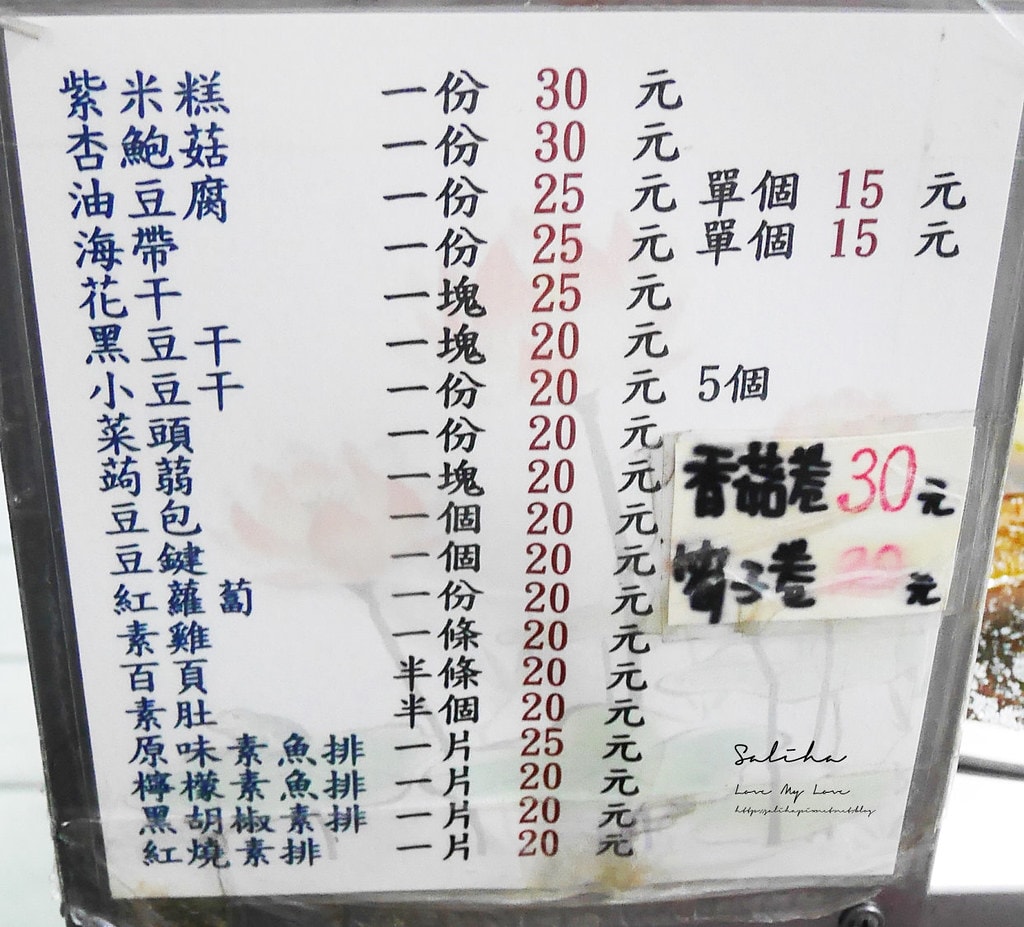 紫米糕 一份 30 元
杏鮑菇 一份 30 元
油豆腐 一份 25 元 單個 15 元
海帶 一份 25 元 單個 15 元
花干 一塊 25 元
黑豆干 一塊 20 元
小豆干 一份 20 元 5個
菜頭 一份 20 元
蒟蒻 一塊 20 元
豆包 一個 20 元
豆鍵 一個 20 元
紅蘿蔔 一份 20 元
素雞 一條 20 元
百頁 半條 20 元
素肚 半個 20 元
原味素魚排 一片 25 元
檸檬素魚排 一片 20 元
黑胡椒素排 一片 20 元
紅燒素排 一片 20 元
香菇卷 30 元
子卷 元
Saliha
Love My Love